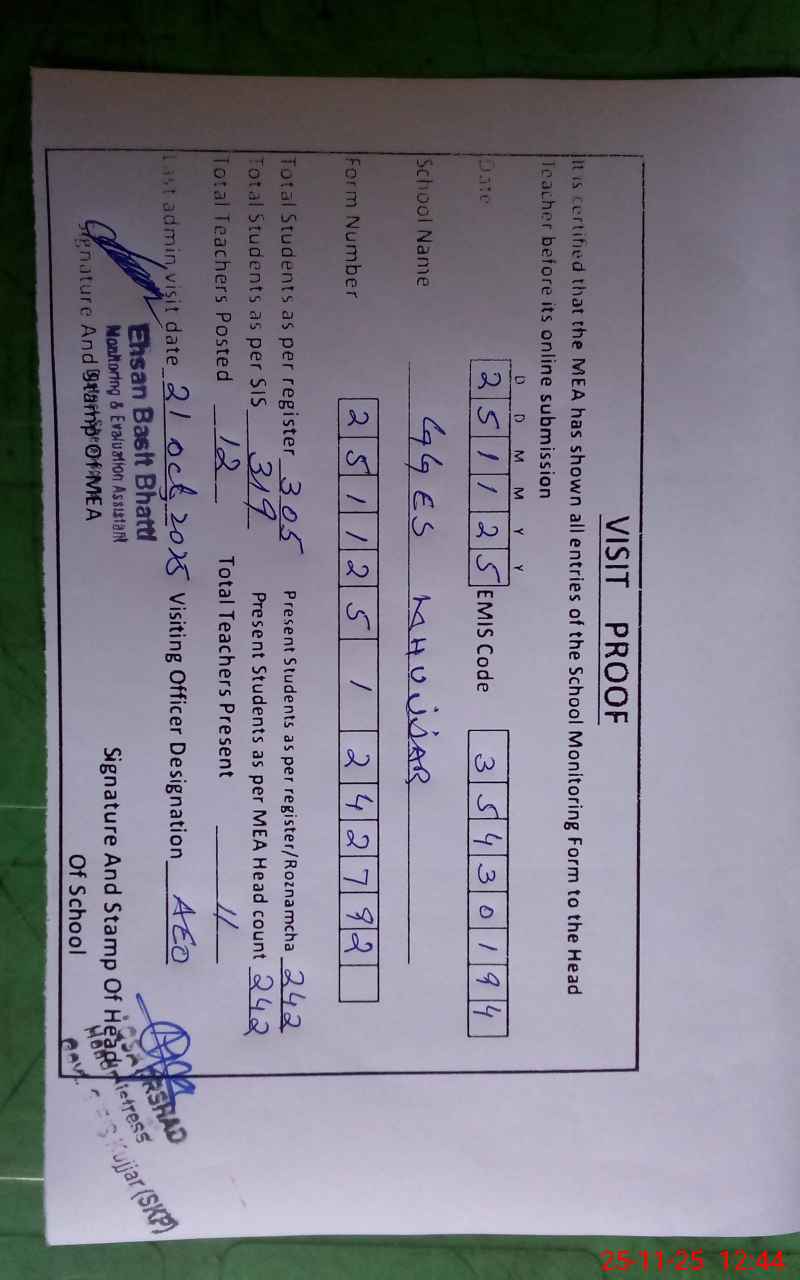 VISIT PROOF
It is certified that the MEA has shown all entries of the School Monitoring Form to the Head
Teacher before its online submission
D D M M Y Y
Date 2 5 1 1 2 5 EMIS Code 3 5 4 3 0 1 9 4
School Name GGES MHUJJAR
Form Number 2 5 1 1 2 5 1 2 4 2 7 9 2
Total Students as per register 305 Present Students as per register/Roznamcha 242
Total Students as per SIS 319 Present Students as per MEA Head count 242
Total Teachers Posted 12 Total Teachers Present 11
Last admin, visit date 21 oct 2025 Visiting Officer Designation AEO
Ehsan Basit Bhatti
Monitoring & Evaluation Assistant
Signature And Stamp Of MEA
Signature And Stamp Of Head
Of School
ARSHAD
Kujjar (SKP)
25-11-25 12:44